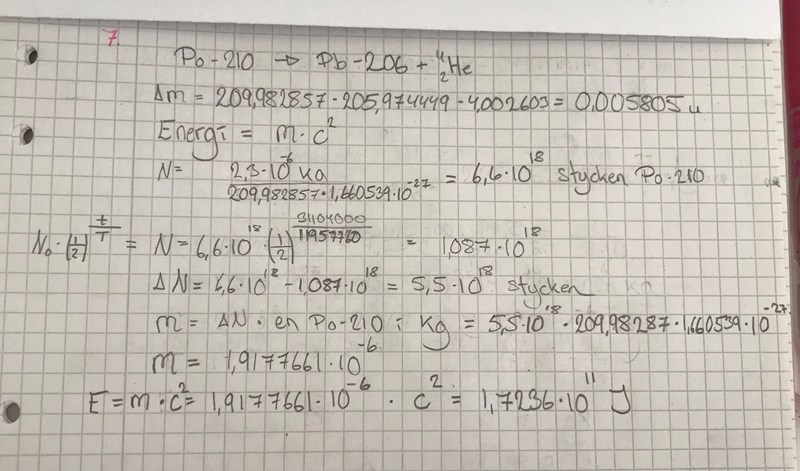 7.
Po-210 → Pb-206 + ⁴₂He
Δm = 209,982857 - 205,974449 - 4,002603 = 0,005805 u
Energi = m · c²
N = 2,3·10⁻⁶ kg / 209,982857·1,660539·10⁻²⁷ = 6,6·10¹⁸ stycken Po-210
N₀·(1/2)^(t/T) = N = 6,6·10¹⁸·(1/2)^(/11957760) = 1,087·10¹⁸
ΔN = 6,6·10¹⁸ - 1,087·10¹⁸ = 5,5·10¹⁸ stycken
m = ΔN · en Po-210 i kg = 5,5·10¹⁸ · 209,98287·1,660539·10⁻²⁷
m = 1,9177661·10⁻⁶
E = m·c² = 1,9177661·10⁻⁶ · c² = 1,7236·10¹¹ J